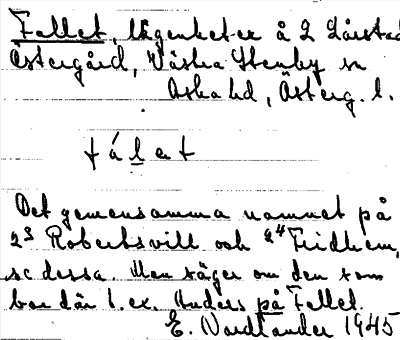 Fallet, lägenheter å 2 Lårstad
Östergård, Västra Stenby sn
Aska hd, Österg. l.
fálet
Det gemensamma namnet på
2³ Robertsvill och 2⁴ Fridhem,
se dessa. Man säger om den som
bor där t.ex. Anders på Fallet.
E. Nordlander 1945